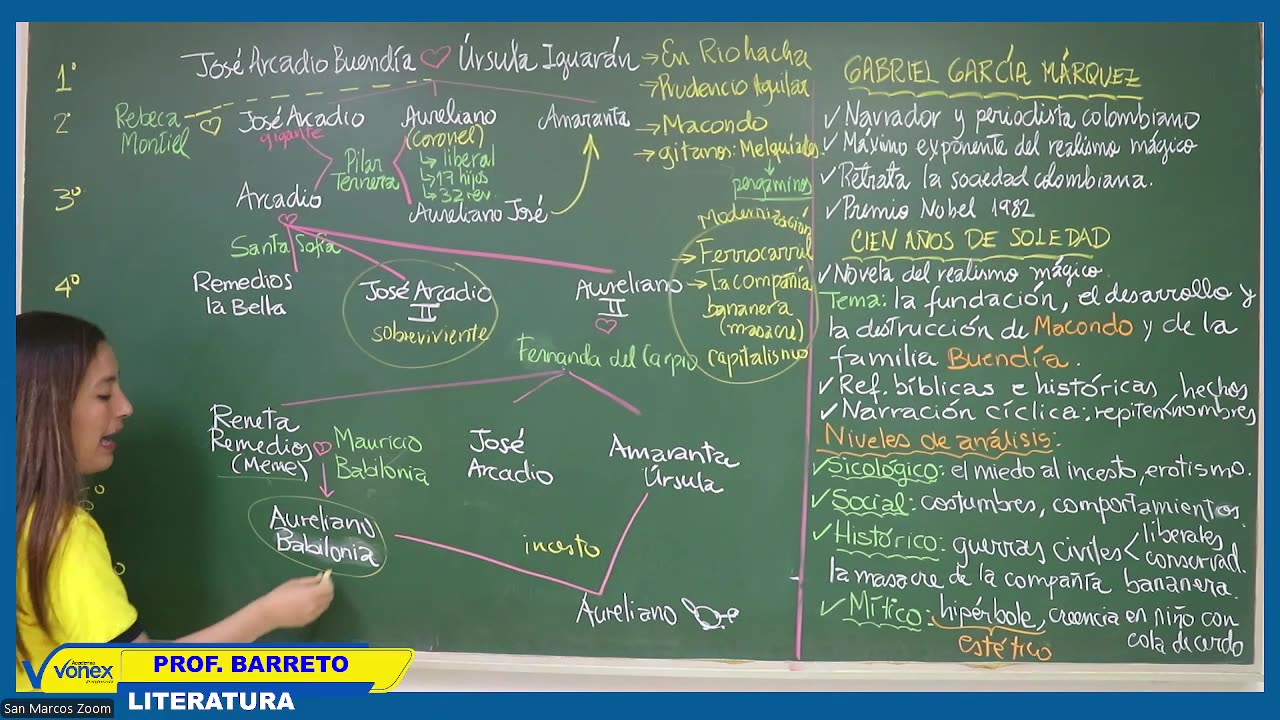 1°
José Arcadio Buendía Úrsula Iguarán → En Riohacha
→ Prudencio Aguilar
2°
Rebeca
Montiel
José Arcadio
gigante
Aureliano
(coronel)
↳ liberal
↳ 17 hijos
↳ 32 rev.
Amaranta
→ Macondo
→ gitanos: Melquiades
pergaminos
Pilar
Ternera
3°
Arcadio
Aureliano José
Santa Sofía
4°
Remedios
la Bella
José Arcadio
II
sobreviviente
Aureliano
II
Modernización
→ Ferrocarril
→ La compañía
bananera
(masacre)
capitalismo
Fernanda del Carpio
Reneta
Remedios
(Meme)
Mauricio
Babilonia
José
Arcadio
Amaranta
Úrsula
Aureliano
Babilonia
incesto
Aureliano
GABRIEL GARCÍA MÁRQUEZ
✓ Narrador y periodista colombiano
✓ Máximo exponente del realismo mágico
✓ Retrata la sociedad colombiana.
✓ Premio Nobel 1982
CIEN AÑOS DE SOLEDAD
✓ Novela del realismo mágico.
Tema: la fundación, el desarrollo y
la destrucción de Macondo y de la
familia Buendía.
✓ Ref. bíblicas e históricas, hechos
✓ Narración cíclica: repiten nombres
Niveles de análisis:
✓ Sicológico: el miedo al incesto, erotismo.
✓ Social: costumbres, comportamientos.
✓ Histórico: guerras civiles < liberales
conservad.
la masacre de la compañía bananera.
✓ Mítico: hipérbole, creencia en niño con
cola de cerdo
estético
Academia
vonex
PROF. BARRETO
LITERATURA
San Marcos Zoom